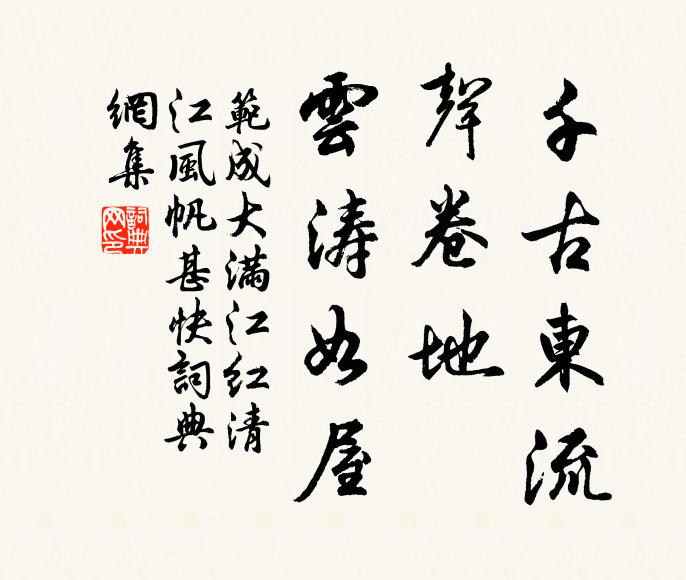 千古東流
聲卷地
雲濤如屋
範成大滿江紅清
江風帆甚快詞典
網集
詞典网印